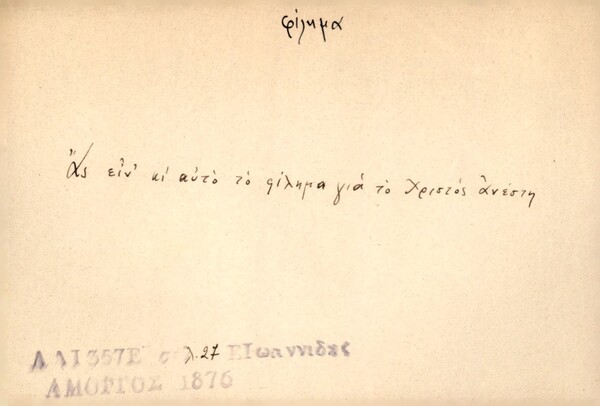 φίλημα
Ἄς εἶν' κι αὐτὸ τὸ φίλημα γιὰ τὸ Χριστὸς ἀνέστη
357Ε σελ. 27 Ε Ιωαννιδες
ΑΜΟΡΓΟΣ 1876